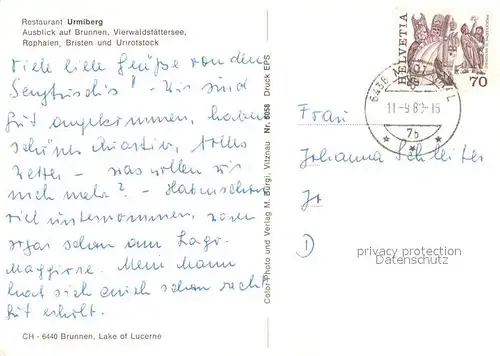 Restaurant Urmiberg
Ausblick auf Brunnen, Vierwaldstättersee,
Rophaien, Bristen und Urirotstock
Viele liebe Grüsse von den
Wir sind
gut angekommen, haben
schönes Quartier, tolles
Wetter - was wollen wir
noch mehr? - Haben schon
viel unternommen, waren
sogar schon am Lago-
Maggiore. Mein Mann
hat sich auch schon recht
gut erholt.
CH - 6440 Brunnen, Lake of Lucerne
Color Photo und Verlag M. Bürgi, Vitznau Nr. 6058 Druck EPS
HELVETIA
70
6436
11-9 8
-15
7b
Frau
Johanna
D
privacy protection
Datenschutz